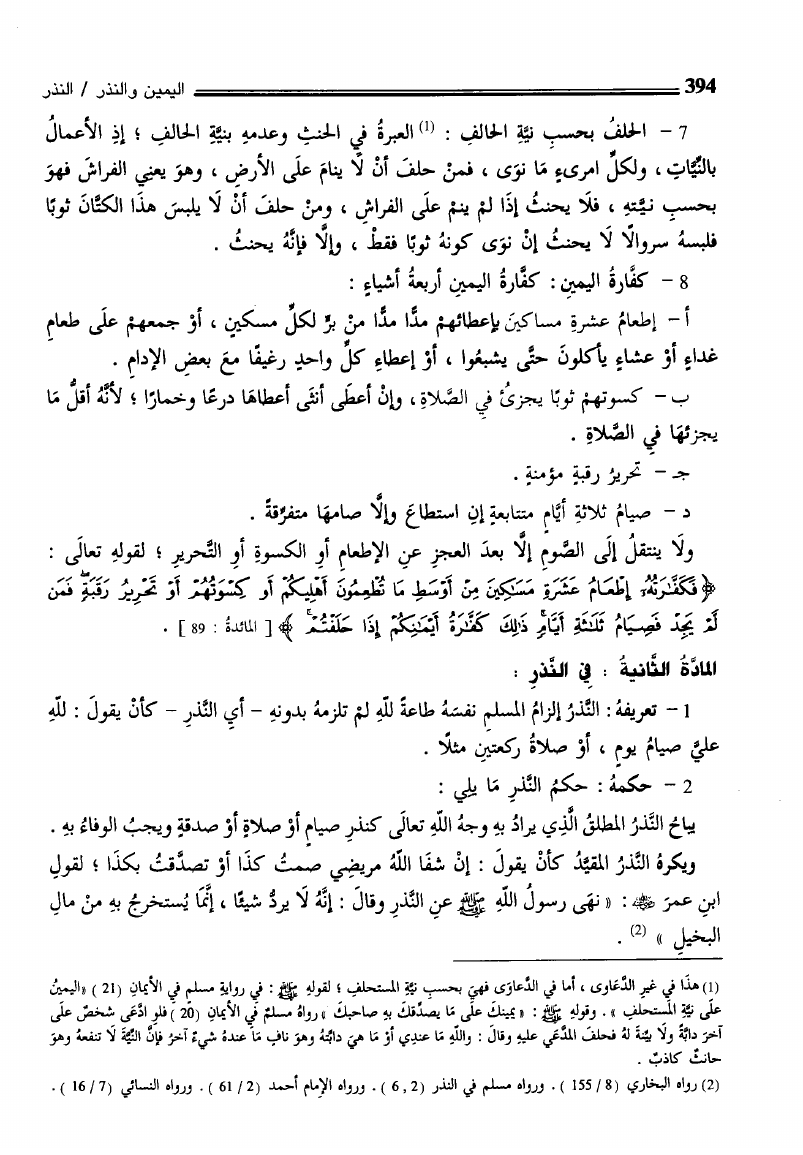 394 اليمين والنذر / النذر
7 - الحلفُ بحسبِ نيَّةِ الحالفِ : (1) العبرةُ في الحنثِ وعدمهِ بنيَّةِ الحالفِ ؛ إذِ الأعمالُ
بالنِّيَّاتِ ، ولكلِّ امرىءٍ مَا نوَى ، فمنْ حلفَ أنْ لَا ينامَ علَى الأرضِ ، وهوَ يعني الفراشَ فهوَ
بحسبِ نيَّتهِ ، فلَا يحنثُ إذَا لمْ ينمْ علَى الفراشِ ، ومنْ حلفَ أنْ لَا يلبسَ هذَا الكتَّانَ ثوبًا
فلبسهُ سروالًا لَا يحنثُ إنْ نوَى كونهُ ثوبًا فقطْ ، وإلَّا فإنَّهُ يحنثُ .
8 - كفَّارةُ اليمينِ : كفَّارةُ اليمينِ أربعةُ أشياءٍ :
أ - إطعامُ عشرةِ مساكينَ بإعطائهمْ مدًّا مدًّا منْ برٍّ لكلِّ مسكينٍ ، أوْ جمعهمْ علَى طعامِ
غداءٍ أوْ عشاءٍ يأكلونَ حتَّى يشبعُوا ، أوْ إعطاءِ كلِّ واحدٍ رغيفًا معَ بعضِ الإدامِ .
ب - كسوتهمْ ثوبًا يجزئُ في الصَّلاةِ ، وإنْ أعطَى أنثَى أعطاهَا درعًا وخمارًا ؛ لأنَّهُ أقلُّ مَا
يجزئهَا فِي الصَّلاةِ .
جـ - تحريرُ رقبةٍ مؤمنةٍ .
د - صيامُ ثلاثةِ أيَّامٍ متتابعةٍ إنِ استطاعَ وإلَّا صامهَا متفرِّقةً .
ولَا ينتقلُ إلَى الصَّومِ إلَّا بعدَ العجزِ عنِ الإطعامِ أوِ الكسوةِ أوِ التَّحريرِ ؛ لقولهِ تعالَى :
﴿ فَكَفَّارَتُهُۥٓ إِطْعَامُ عَشَرَةِ مَسَاكِينَ مِنْ أَوْسَطِ مَا تُطْعِمُونَ أَهْلِيكُمْ أَوْ كِسْوَتُهُمْ أَوْ تَحْرِيرُ رَقَبَةٍ ۖ فَمَن
لَّمْ يَجِدْ فَصِيَامُ ثَلَاثَةِ أَيَّامٍ ۚ ذَٰلِكَ كَفَّارَةُ أَيْمَانِكُمْ إِذَا حَلَفْتُمْ ۚ ﴾ [ المائدةُ : 89 ] .
المادَّةُ الثَّانيةُ : فِي النَّذرِ :
1 - تعريفهُ : النَّذرُ إلزامُ المسلمِ نفسَهُ طاعةً للَّهِ لمْ تلزمهُ بدونهِ - أيِ النَّذرِ - كأنْ يقولَ : للَّهِ
عليَّ صيامُ يومٍ ، أوْ صلاةُ ركعتينِ مثلًا .
2 - حكمهُ : حكمُ النَّذرِ مَا يلِي :
يباحُ النَّذرُ المطلقُ الَّذِي يرادُ بهِ وجهُ اللَّهِ تعالَى كنذرِ صيامٍ أوْ صلاةٍ أوْ صدقةٍ ويجبُ الوفاءُ بهِ .
ويكرهُ النَّذرُ المقيَّدُ كأنْ يقولَ : إنْ شفَا اللَّهُ مريضِي صمتُ كذَا أوْ تصدَّقتُ بكذَا ؛ لقولِ
ابنِ عمرَ ﷺ : « نهَى رسولُ اللَّهِ ﷺ عنِ النَّذرِ وقالَ : إنَّهُ لَا يردُّ شيئًا ، إنَّمَا يُستخرجُ بهِ منْ مالِ
البخيلِ » (2) .
(1) هذَا في غيرِ الدَّعاوى ، أما في الدَّعاوَى فهيَ بحسبِ نيَّةِ المستحلفِ ؛ لقولهِ ﷺ : في روايةِ مسلمٍ في الأيمانِ (21) «اليمينُ
علَى نيَّةِ المستحلفِ » . وقولهِ ﷺ : « يمينكَ علَى مَا يصدِّقكَ بهِ صاحبكَ » رواهُ مسلمٌ في الأيمانِ (20) فلوِ ادَّعَى شخصٌ علَى
آخرَ دابَّةً ولَا بيِّنةَ لهُ فحلفَ المدَّعَى عليهِ وقالَ : واللَّهِ مَا عندِي أوْ مَا هيَ دابَّتهُ وهوَ نافٍ مَا عندهُ شيءٌ آخرُ فإنَّ النِّيَّةَ لَا تنفعهُ وهوَ
حانثٌ كاذبٌ .
(2) رواه البخاري (8 / 155 ) . ورواه مسلم في النذر (2 , 6) . ورواه الإمام أحمد (2 / 61) . ورواه النسائي (7 / 16) .